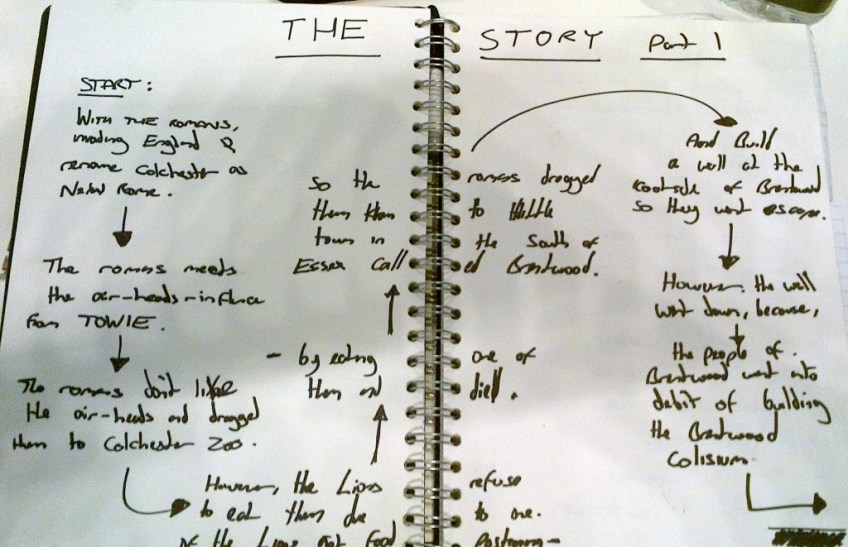 THE STORY Part 1
START:
With THE romans,
invading England &
rename Colchester as
New Rome.
The romans meets
the air-heads-influce
from TOWIE.
The romans don't like
the air-heads and dragged
them to Colchester Zoo.
However, the Lions refuse
to eat them due to one.
of the Lions got food Poisoning-
- by eating one of
them and died.
so the romans dragged
them to little
town in the South of
Essex called Brentwood.
And Build
a wall at the
of Brentwood
so they wont escape.
However, the wall
went down, because,
the people of.
Brentwood went into
debit of building
the Brentwood
Colisium.